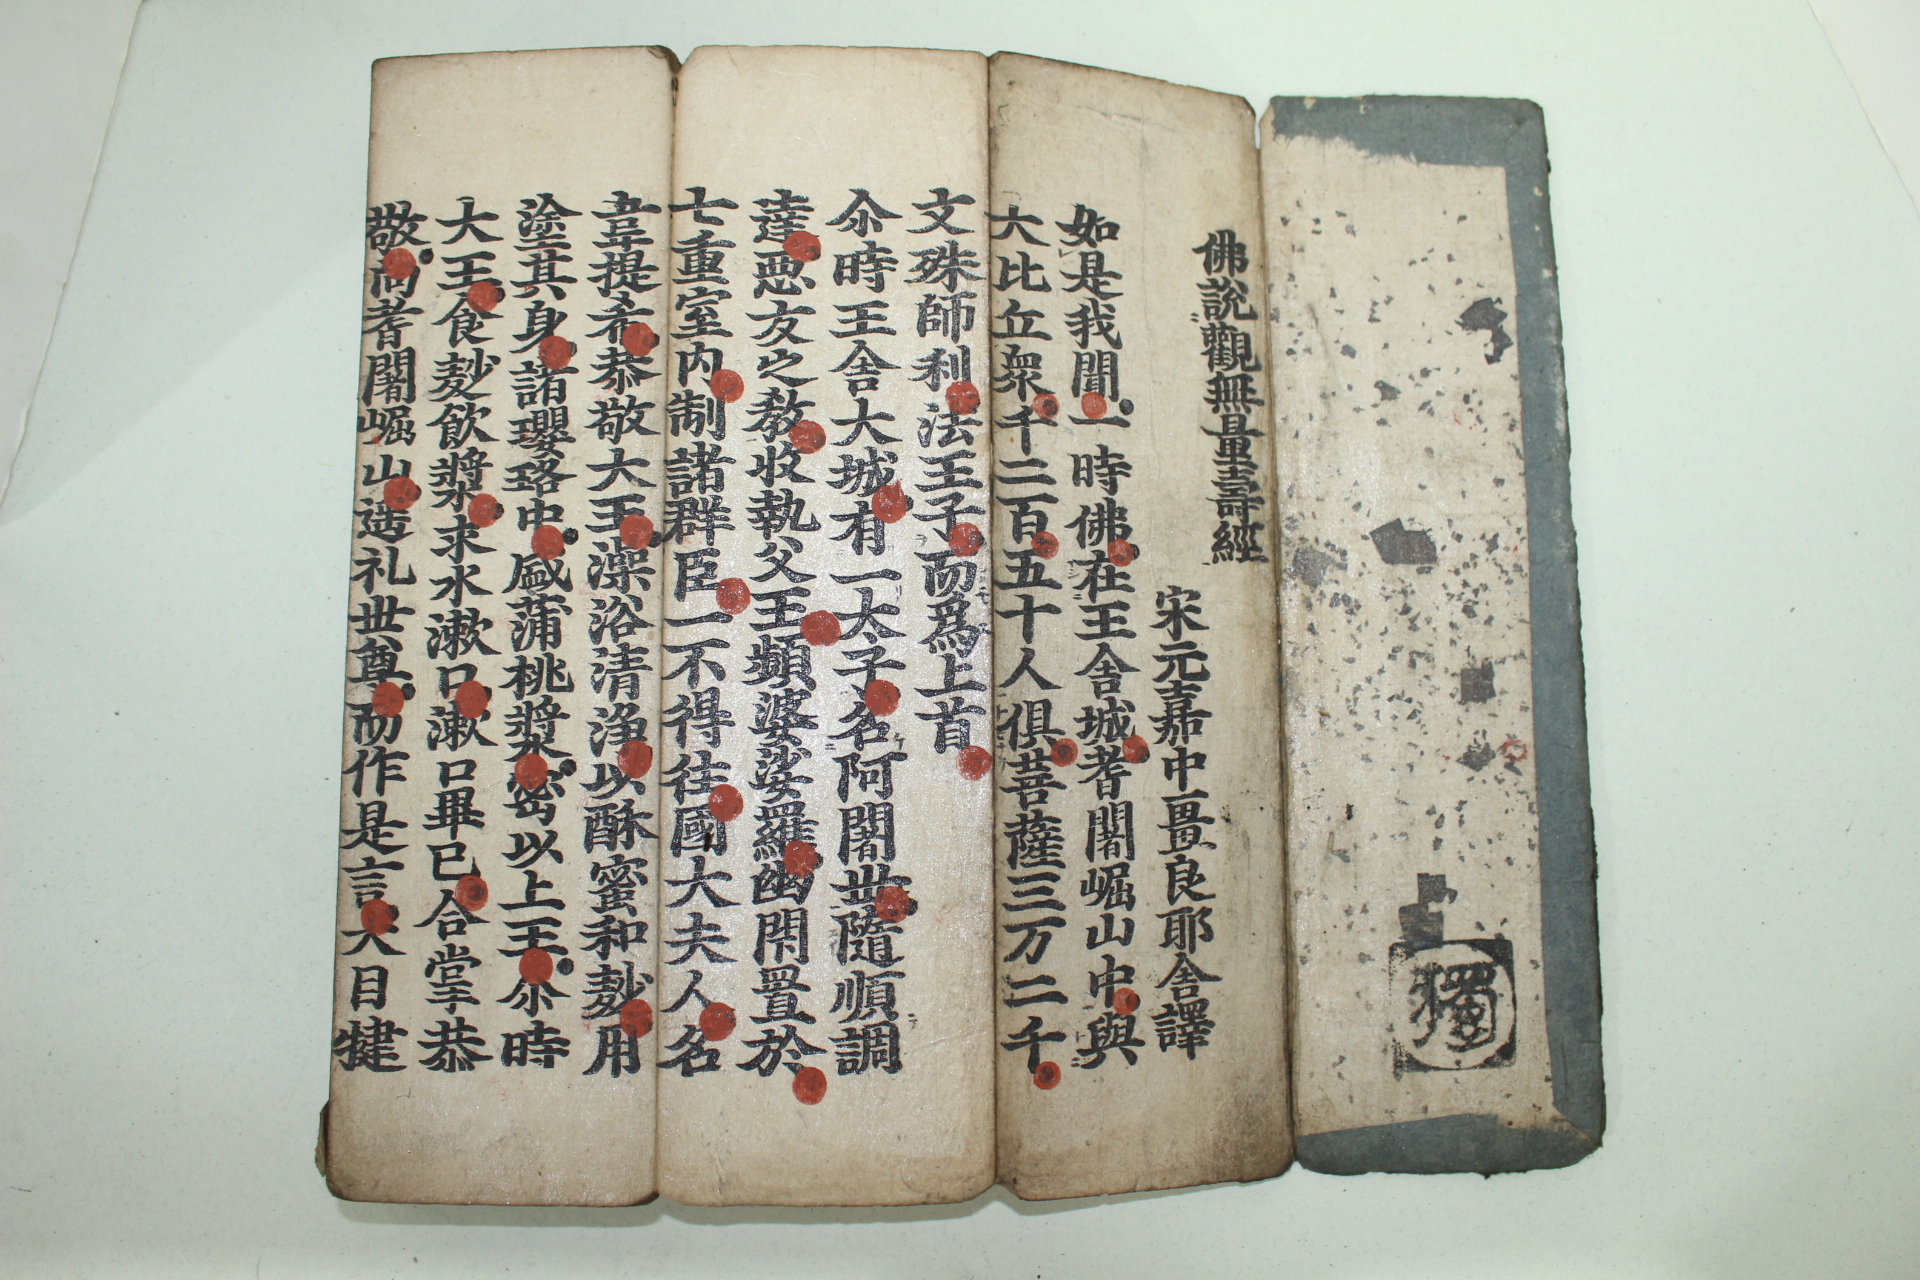 佛說觀無量壽經
宋元嘉中畺良耶舍譯
如是我聞一時佛在王舍城耆闍崛山中與
大比丘衆千二百五十人俱菩薩三万二千
文殊師利法王子而爲上首
尒時王舍大城有一太子名阿闍世隨順調
達惡友之教收執父王頻婆娑羅幽閉置於
七重室内制諸群臣一不得往國大夫人名
韋提希恭敬大王澡浴清淨以酥蜜和麨用
塗其身諸瓔珞中盛蒲桃漿密以上王尒時
大王食麨飲漿求水漱口漱口畢已合掌恭
敬向耆闍崛山遙礼世尊而作是言大目犍